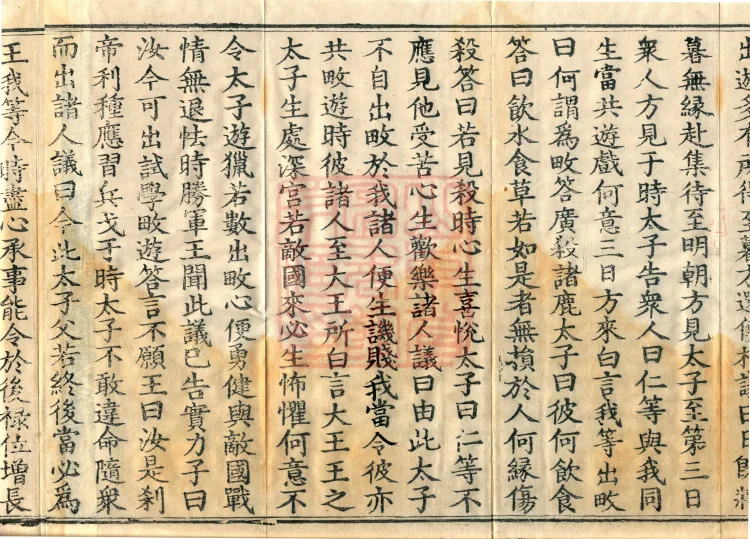 暮無縁赴集待至明朝方見太子至第三日
衆人方見于時太子告衆人曰仁等與我同
生當共遊戲何意三日方來白言我等出畋
曰何謂爲畋答廣殺諸鹿太子曰彼何飲食
答曰飲水食草若如是者無損於人何縁傷
殺答曰若見殺時心生喜悅太子曰仁等不
應見他受苦心生歡樂諸人議曰由此太子
不自出畋於我諸人便生譏賤我當令彼亦
共畋遊時彼諸人至大王所白言大王王之
太子生處深宮若敵國來必生怖懼何意不
令太子遊獵若數出畋心便勇健與敵國戰
情無退怯時勝軍王聞此議已告實力子曰
汝今可出試學畋遊答言不願王曰汝是刹
帝利種應習兵戈于時太子不敢違命隨衆
而出諸人議曰今此太子父若終後當必爲
王我等今時盡心承事能令於後禄位增長